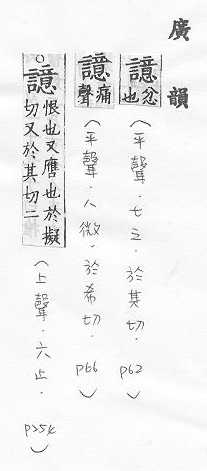 廣韻
譩 忿也 (平聲．七之．於其切．p62)
譩 痛聲 (平聲．八微．於希切．p66)
○譩 恨也又譍也於擬切又於其切二 (上聲．六止．p254)